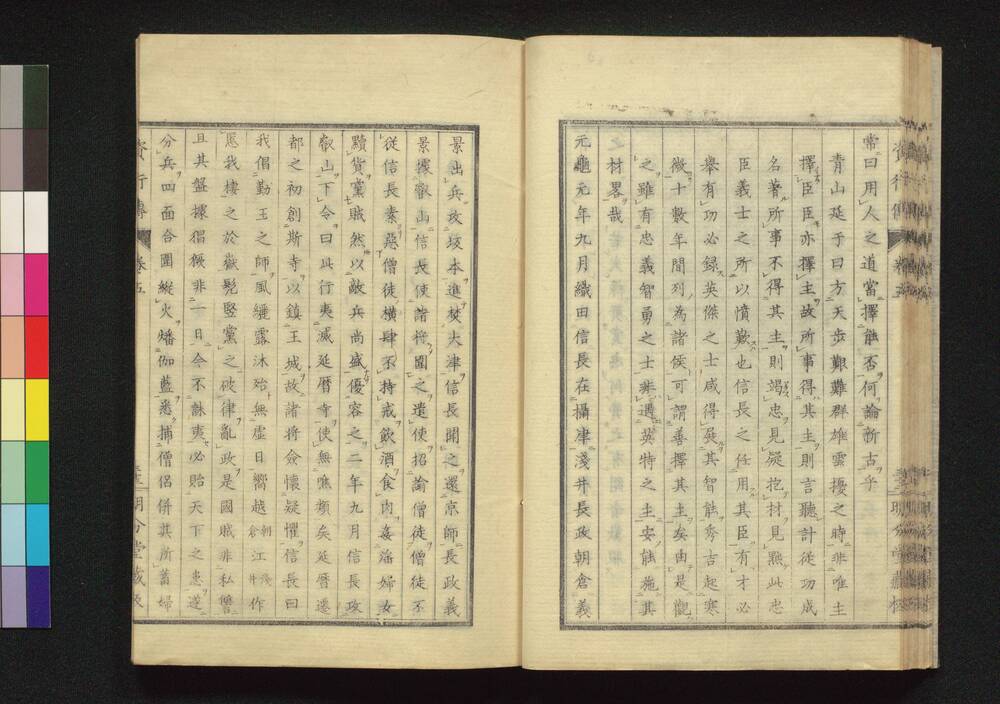 常曰用人之道當擇能否何論新古乎
青山延于曰方天步艱難群雄雲擾之時非唯主
擇臣臣亦擇主故所事得其主則言聽計從功成
名著所事不得其主則竭忠見疑抱材見黜此忠
臣義士之所以憤歎也信長之任用其臣有才必
舉有功必録英傑之士咸得展其智能秀吉起寒
微十數年間列為諸侯可謂善擇其主矣由是觀
之雖有忠義智勇之士非遇英特之主安能施其
材畧哉
元龜元年九月織田信長在攝津淺井長政朝倉義
景出兵攻坂本進焚大津信長聞之還京師長政義
景據叡山信長使諸將圍之遣使招諭僧徒僧徒不
從信長素惡僧徒橫肆不持戒飲酒食肉姦婬婦女
黷貨黨賊然以敵兵尚盛優容之二年九月信長攻
叡山下令曰此行夷滅延曆寺使無噍類矣延曆遷
都之初創斯寺以鎮王城故諸將僉懷疑懼信長曰
我倡勤王之師風纚露沐殆無虛日嚮越朝倉江淺井作
慝我棲之於嶽髡豎黨之破律亂政是國賊非私讐
且其盤據猖獗非一日今不誅夷必貽天下之患遂
分兵四面合圍縱火燔伽藍悉捕僧侶併其所蓄婦
資行傳 卷五